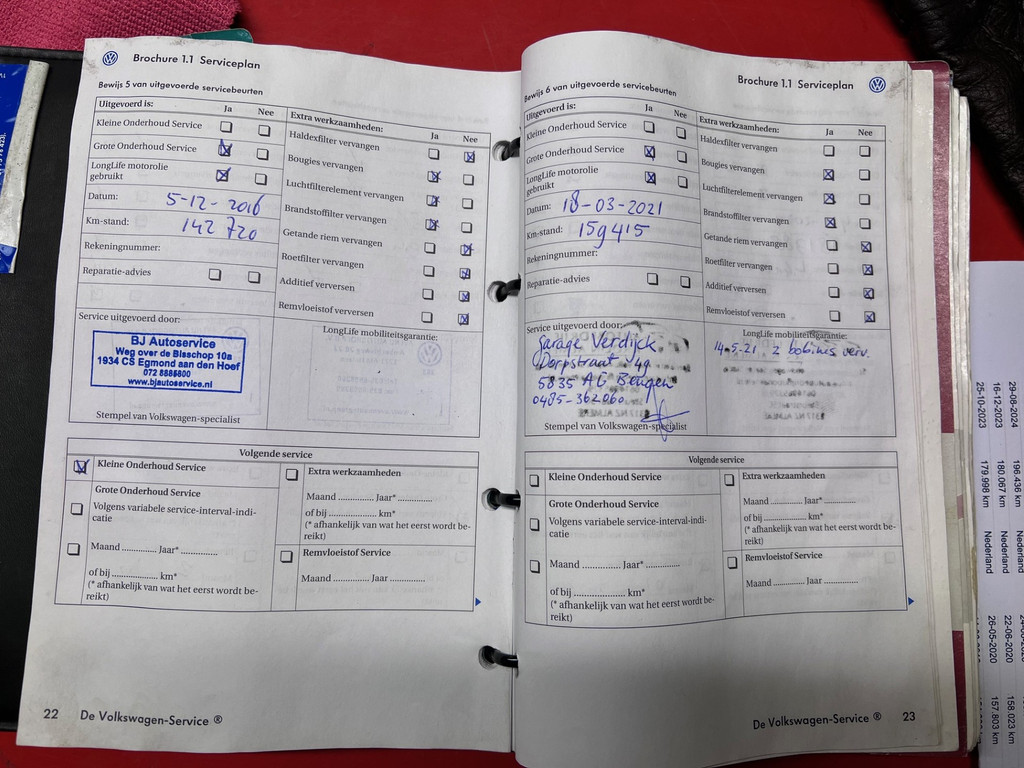 Brochure 1.1 Serviceplan
Bewijs 5 van uitgevoerde servicebeurten
Uitgevoerd is: Ja Nee
Kleine Onderhoud Service
Grote Onderhoud Service
LongLife motorolie
gebruikt
Datum: 5-12-2016
Km-stand: 142 720
Rekeningnummer:
Reparatie-advies
Extra werkzaamheden: Ja Nee
Haldexfilter vervangen
Bougies vervangen
Luchtfilterelement vervangen
Brandstoffilter vervangen
Getande riem vervangen
Roetfilter vervangen
Additief verversen
Remvloeistof verversen
Service uitgevoerd door:
BJ Autoservice
Weg over de Bisschop 10a
1934 CS Egmond aan den Hoef
072 8885800
www.bjautoservice.nl
Stempel van Volkswagen-specialist
LongLife mobiliteitsgarantie:
Volgende service
Kleine Onderhoud Service
Grote Onderhoud Service
Volgens variabele service-interval-indi-
catie
Maand .............. Jaar* ..............
of bij .................. km*
(* afhankelijk van wat het eerst wordt be-
reikt)
Extra werkzaamheden
Maand .............. Jaar* ..............
of bij .................. km*
(* afhankelijk van wat het eerst wordt be-
reikt)
Remvloeistof Service
Maand .............. Jaar ..............
22 De Volkswagen-Service ®
Brochure 1.1 Serviceplan
Bewijs 6 van uitgevoerde servicebeurten
Uitgevoerd is: Ja Nee
Kleine Onderhoud Service
Grote Onderhoud Service
LongLife motorolie
gebruikt
Datum: 18-03-2021
Km-stand: 159415
Rekeningnummer:
Reparatie-advies
Extra werkzaamheden: Ja Nee
Haldexfilter vervangen
Bougies vervangen
Luchtfilterelement vervangen
Brandstoffilter vervangen
Getande riem vervangen
Roetfilter vervangen
Additief verversen
Remvloeistof verversen
Service uitgevoerd door:
Garage Verdijck
Dorpstraat 
5835 AG Beugen
0485-362060
Stempel van Volkswagen-specialist
LongLife mobiliteitsgarantie:
14-5-21 2 bobines verv.
Volgende service
Kleine Onderhoud Service
Grote Onderhoud Service
Volgens variabele service-interval-indi-
catie
Maand .............. Jaar* ..............
of bij .................. km*
(* afhankelijk van wat het eerst wordt be-
reikt)
Extra werkzaamheden
Maand .............. Jaar* ..............
of bij .................. km*
(* afhankelijk van wat het eerst wordt be-
reikt)
Remvloeistof Service
Maand .............. Jaar ..............
De Volkswagen-Service ® 23
29-08-2024 196.436 km Nederland
16-12-2023 180.067 km Nederland 22-06-2020 158.023 km
25-10-2023 179.998 km Nederland 26-05-2020 157.803 km